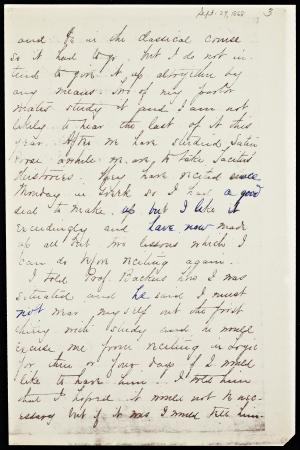 Sept. 29, 1868 3
and is in the classical course
so it had to go. but I do not in-
tend to give it up altogether by
any means. Two of my parlor
mates study it and I am not
likely to hear the last of it this
year. After we have studied Latin
Prose awhile we are to take Tacitus
Histories. They have recited since
Monday in Greek so I had a good
deal to make up but I like it
exceedingly and have now made
up all but two lessons which I
can do before reciting again.
I told Prof. Backus how I was
situated and he said I must
not wear myself out the first
thing with study and he would
excuse me from reciting in Logic
for three or four days if I would
like to have him. I told him
that I hoped it would not be nec-
essary but if it was I would tell him.